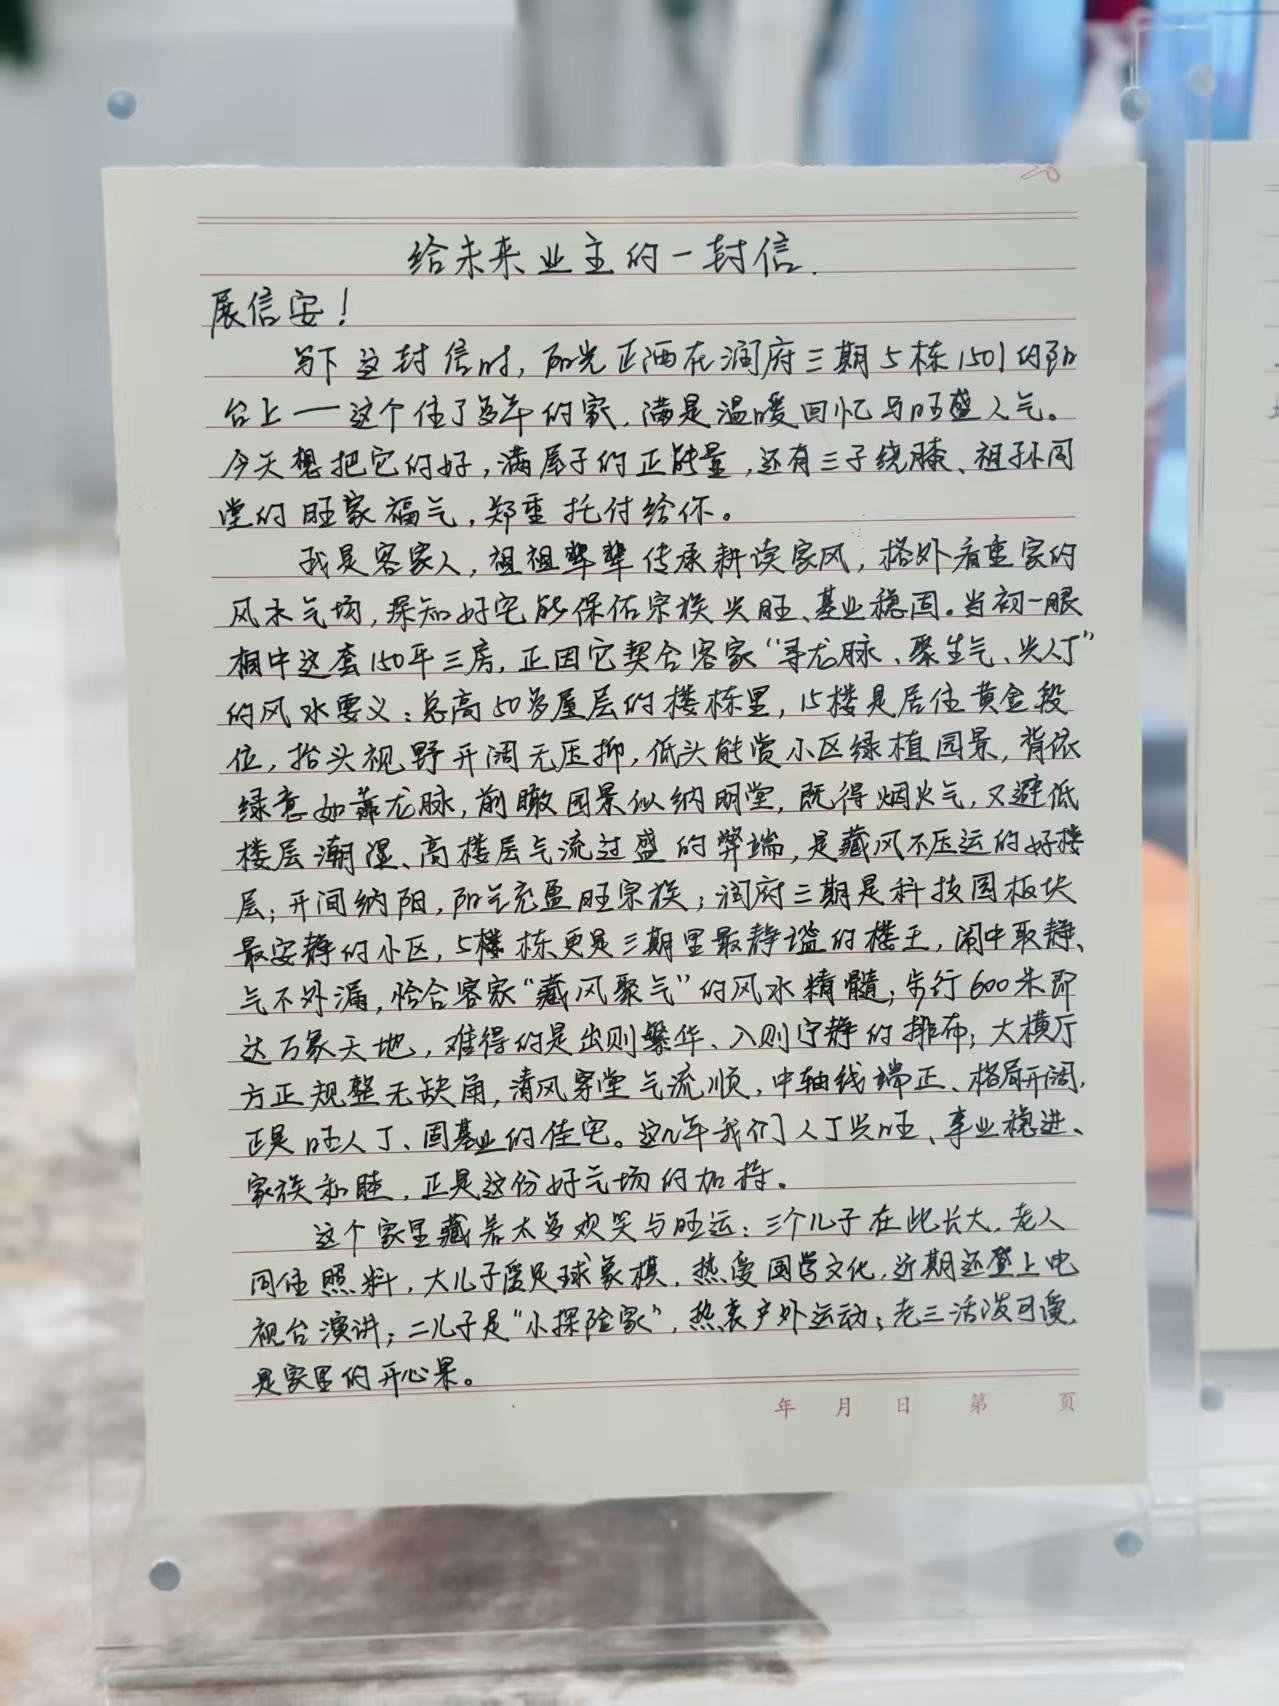 给未来业主的一封信.
展信安！
写下这封信时，阳光正洒在润府三期5栋1501的阳
台上——这个住了多年的家，满是温暖回忆与旺盛人气。
今天想把它的好，满屋子的正能量，还有三子绕膝、祖孙同
堂的旺家福气，郑重托付给你。
我是客家人，祖祖辈辈传承耕读家风，格外看重家的
风水气场，深知好宅能保佑宗族兴旺、基业稳固。当初一眼
相中这套150平三房，正因它契合客家“寻龙脉、聚生气、兴人丁”
的风水要义：总高50多层的楼栋里，15楼是居住黄金段
位，抬头视野开阔无压抑，低头能赏小区绿植园景，背依
绿意如靠龙脉，前瞰园景似纳明堂，既得烟火气，又避低
楼层潮湿、高楼层气流过盛的弊端，是藏风不压运的好楼
层；开间纳阳，阳气充盈旺宗族；润府三期是科技园板块
最安静的小区，5楼栋更是三期里最静谧的楼王，闹中取静、
气不外漏，恰合客家“藏风聚气”的风水精髓；步行600米即
达万象天地，难得的是出则繁华、入则宁静的排布；大横厅
方正规整无缺角，清风穿堂气流顺，中轴线端正、格局开阔，
正是旺人丁、固基业的佳宅。这几年我们人丁兴旺、事业稳进、
家族和睦，正是这份好气场的加持。
这个家里藏着太多欢笑与旺运：三个儿子在此长大，老人
同住照料，大儿子爱足球象棋，热爱国学文化，近期还登上电
视台演讲；二儿子是“小探险家”，热衷户外运动；老三活泼可爱，
是家里的开心果。
年 月 日 第 页